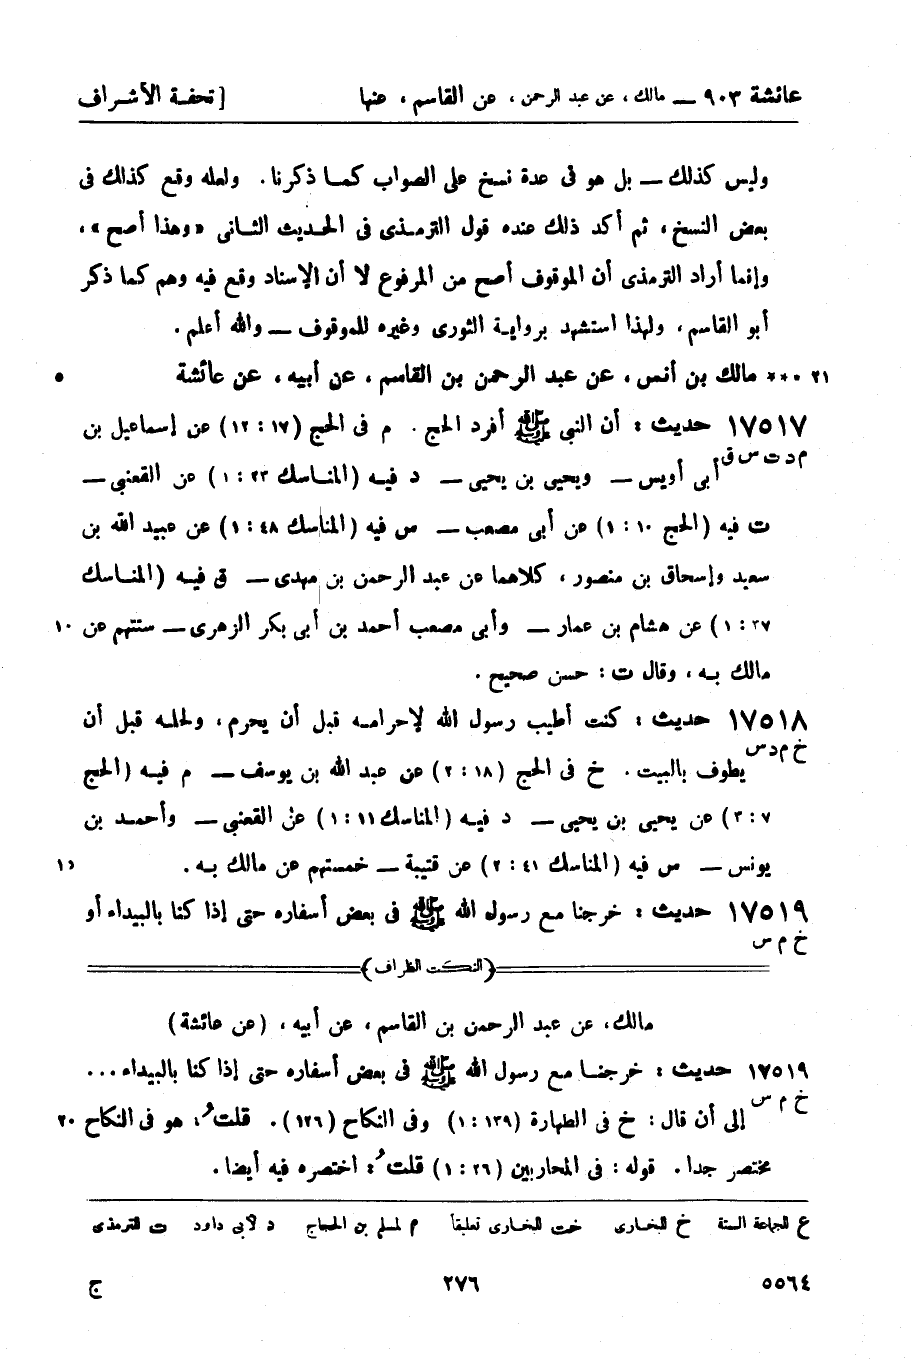 عائشة ٩٠٣ — مالك ، عن عبد الرحمن ، عن القاسم ، عنها [ تحفة الأشراف
وليس كذلك — بل هو فى عدة نسخ على الصواب كما ذكرنا . ولعله وقع كذلك فى
بعض النسخ ، ثم أكد ذلك عنده قول الترمذى فى الحديث الثانى «وهذا أصح» ،
وإنما أراد الترمذى أن الموقوف أصح من المرفوع لا أن الإسناد وقع فيه وهم كما ذكر
أبو القاسم ، ولهذا استشهد برواية الثورى وغيره للموقوف — والله أعلم .
٢١ ••** مالك بن أنس ، عن عبد الرحمن بن القاسم ، عن أبيه ، عن عائشة •
١٧٥١٧ حديث : أن النبى ﷺ أفرد الحج . م فى الحج (١٧ : ١٢) عن إسماعيل بن
م د ت س ق
أبى أويس — ويحيى بن يحيى — د فيه (المناسك ٢٣ : ١) عن القعنبى —
ت فيه (الحج ١٠ : ١) عن أبى مصعب — س فيه (المناسك ٤٨ : ١) عن عبيد الله بن
سعيد وإسحاق بن منصور ، كلاهما عن عبد الرحمن بن مهدى — ق فيه (المناسك
٣٧ : ١) عن هشام بن عمار — وأبى مصعب أحمد بن أبى بكر الزهرى — ستتهم عن ١٠
مالك به ، وقال ت : حسن صحيح .
١٧٥١٨ حديث : كنت أطيب رسول الله لإحرامه قبل أن يحرم ، ولحله قبل أن
خ م د س
يطوف بالبيت . خ فى الحج (١٨ : ٢) عن عبد الله بن يوسف — م فيه (الحج
٧ : ٣) عن يحيى بن يحيى — د فيه (المناسك ١١ : ١) عن القعنبى — وأحمد بن
يونس — س فيه (المناسك ٤١ : ٢) عن قتيبة — خمستهم عن مالك به . ١٥
١٧٥١٩ حديث : خرجنا مع رسول الله ﷺ فى بعض أسفاره حتى إذا كنا بالبيداء أو
خ م س
(النكت الظراف)
مالك، عن عبد الرحمن بن القاسم ، عن أبيه ، (عن عائشة)
١٧٥١٩ حديث : خرجنا مع رسول الله ﷺ فى بعض أسفاره حتى إذا كنا بالبيداء ...
خ م س
إلى أن قال : خ فى الطهارة (١٣٩ : ١) وفى النكاح (١٢٦) . قلتُ : هو فى النكاح ٢٠
مختصر جدا . قوله : فى المحاربين (٢٦ : ١) قلتُ : اختصره فيه أيضا .
ع للجماعة الستة خ للبخارى خت للبخارى تعليقاً م لمسلم بن الحجاج د لأبى داود ت للترمذى
٥٥٦٤ ٢٧٦ ج